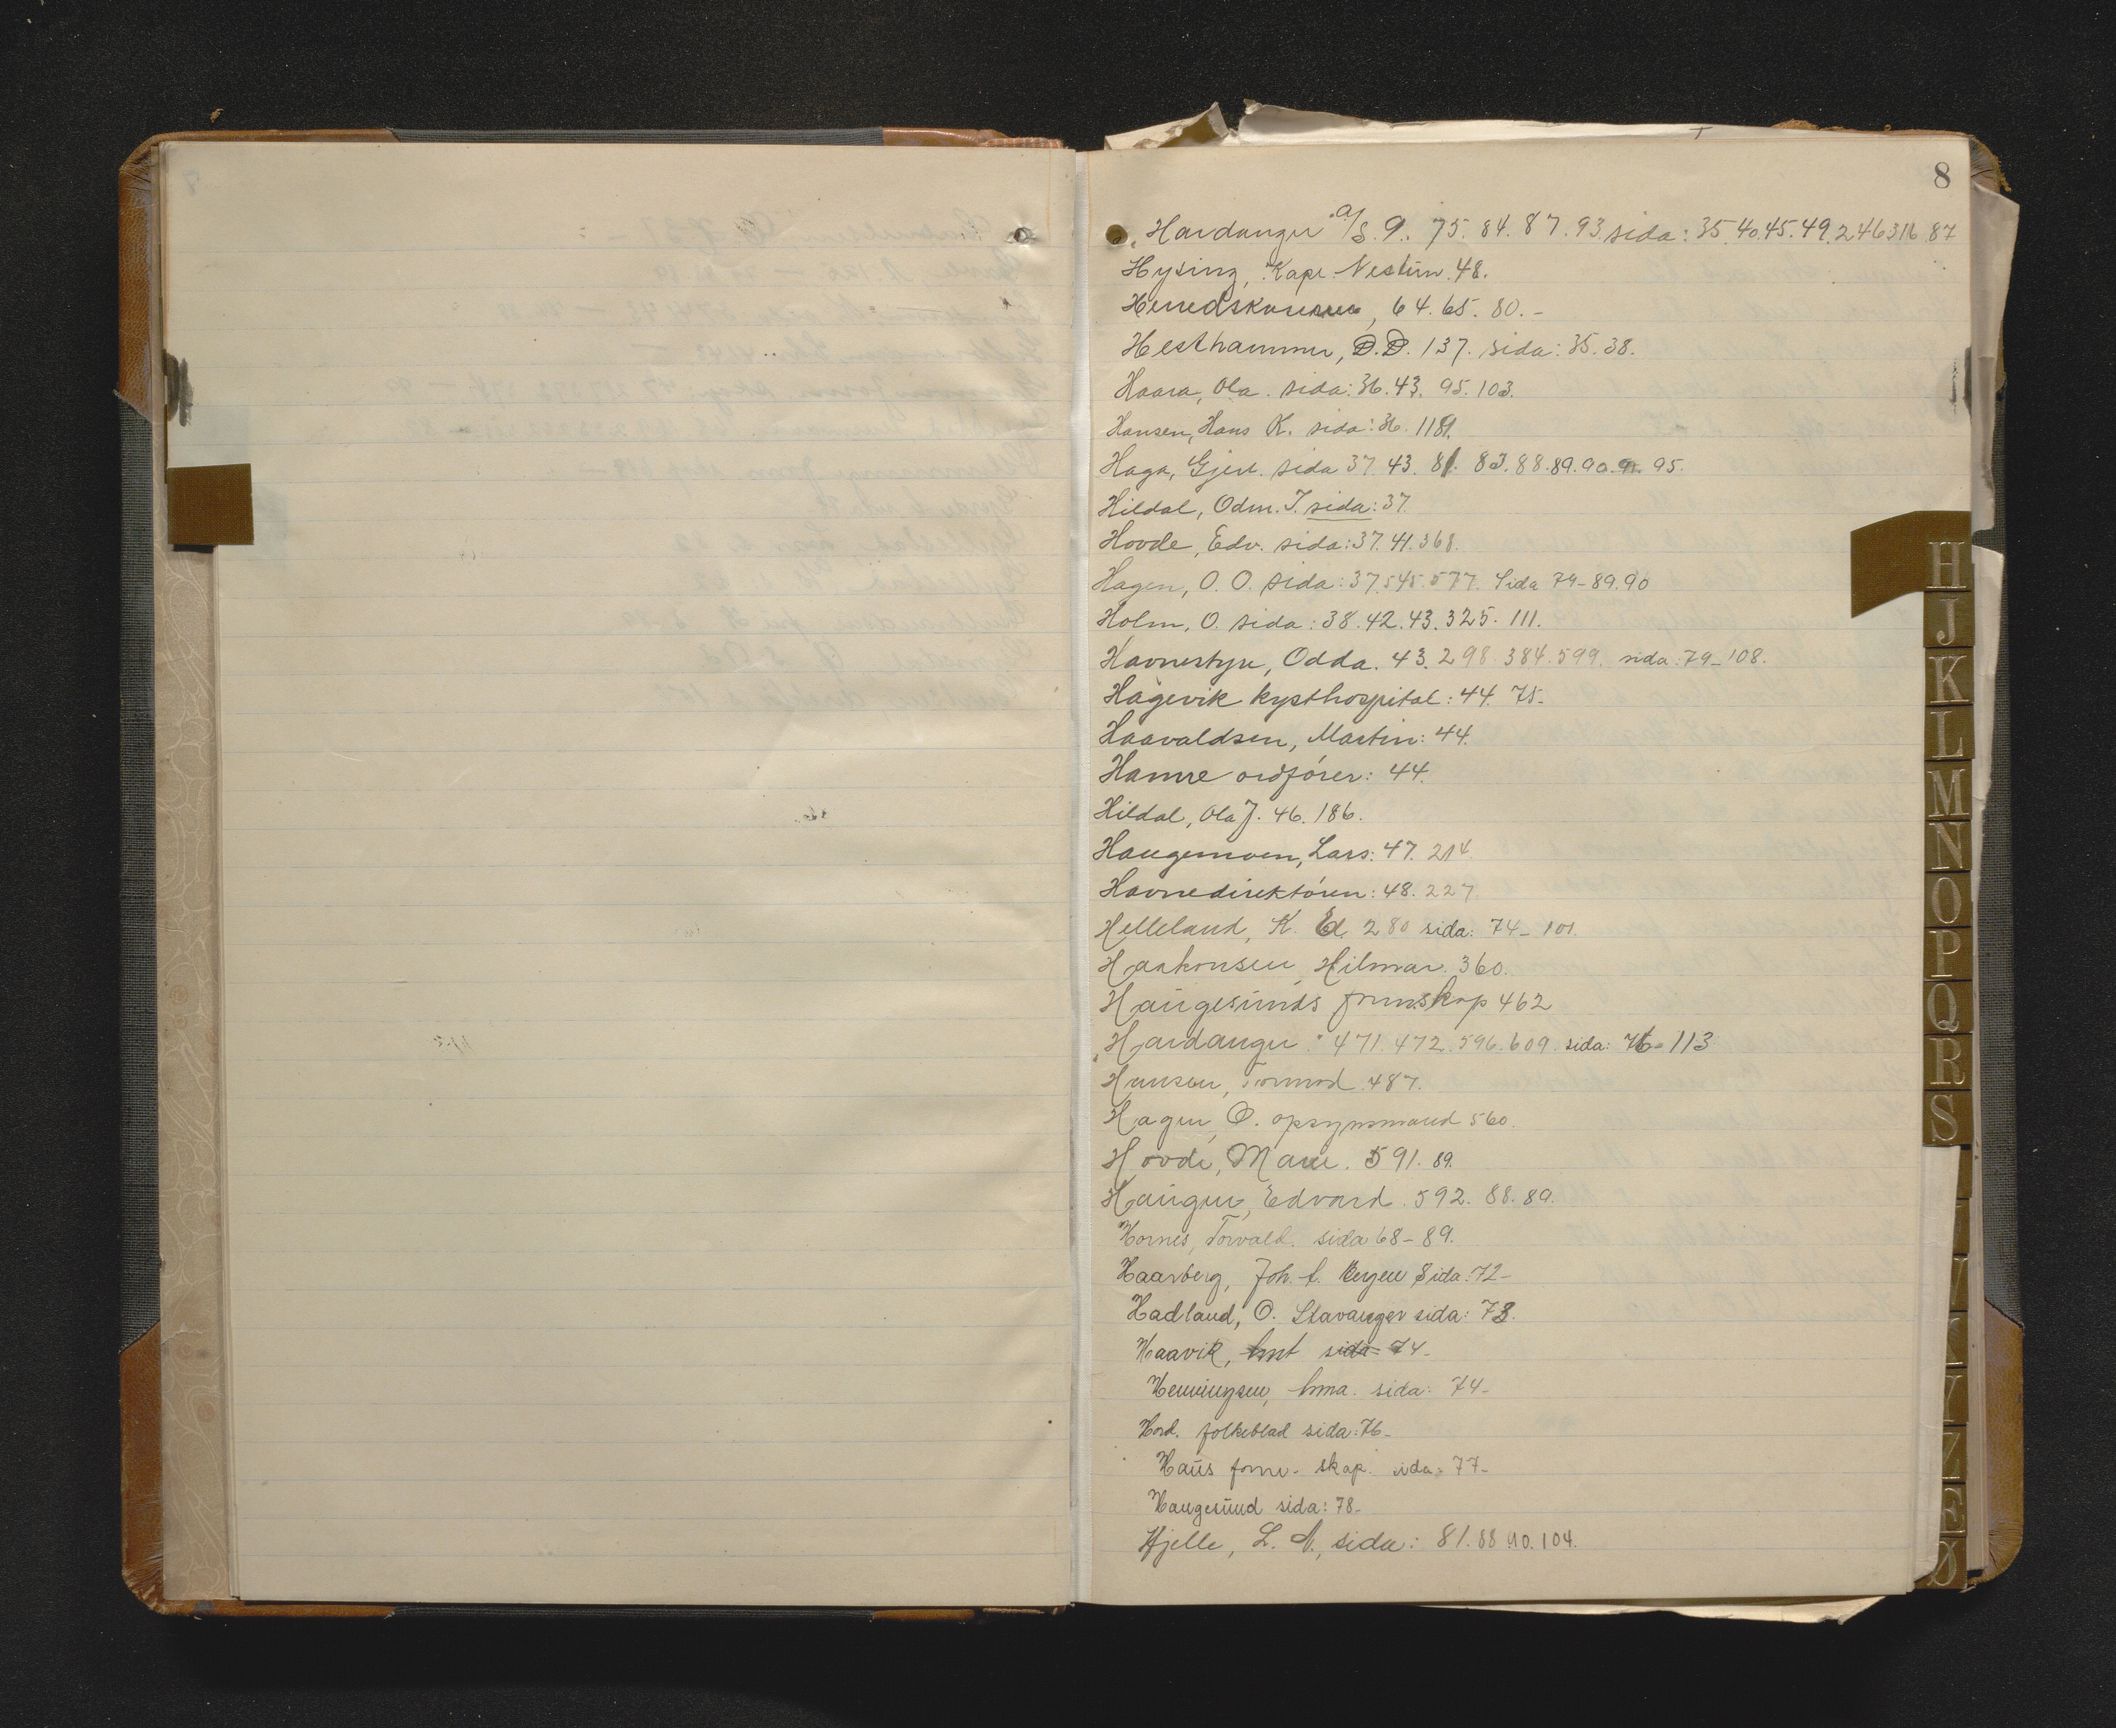 8
"Hardanger" A/S. 9. 75. 84. 87. 93. sida: 35. 40. 45. 49. 246 316 87
Hysing, Kape. Nestün. 48.
Herredskassen, 64. 65. 80. -
Hesthammer, D.D. 137. sida: 35. 38.
Haara, Ola. sida: 36. 43. 95. 103.
Hansen, Hans K. sida: 36. 118.
Haga, Gjert. sida 37. 43. 81. 83. 88. 89. 90. 91. 95.
Hildal, Odm. T. sida: 37.
Hovde, Edv. sida: 37. 41. 368.
Hagen, O. O. sida: 37. 545. 577. Sida 79-89. 90
Holm, O. sida: 38. 42. 43. 325. 111.
Havnestyre, Odda. 43. 298 384. 599. sida: 79-108.
Hagevik kysthospital: 44. 75-
Haavaldsen, Martin: 44.
Hamre ordfører: 44.
Hildal, Ola J. 46. 186.
Haugemoen, Lars: 47. 214.
Havnedirektøren: 48. 227
Helleland, K. Ed. 280 sida: 74- 101.
Haakonsen, Hilmar. 360.
Haügesünds formskap 462
"Hardanger" 471. 472. 596. 609. sida: 76-113
Hansen, Tormod. 487.
Hagen, O. opsynsmand 560.
Hovde, Marie. 591. 89.
Haügen, Edvard. 592. 88. 89.
Hornes, Torvald. sida 68-89.
Haarberg, Joh. f. Bergen Sida: 72-
Hadland, O. Stavanger sida: 73.
Haavik, Amt sida 74-
Henningsen, Anna. sida: 74-
Hord. folkeblad sida: 76-
Haüs form- skap. sida: 77-
Haugesünd sida: 78-
Hjelle, L. A., sida: 81. 88 90. 104.
H
J
K
L
M
N
O
P
Q
R
S
Y
Z
Æ
Ø